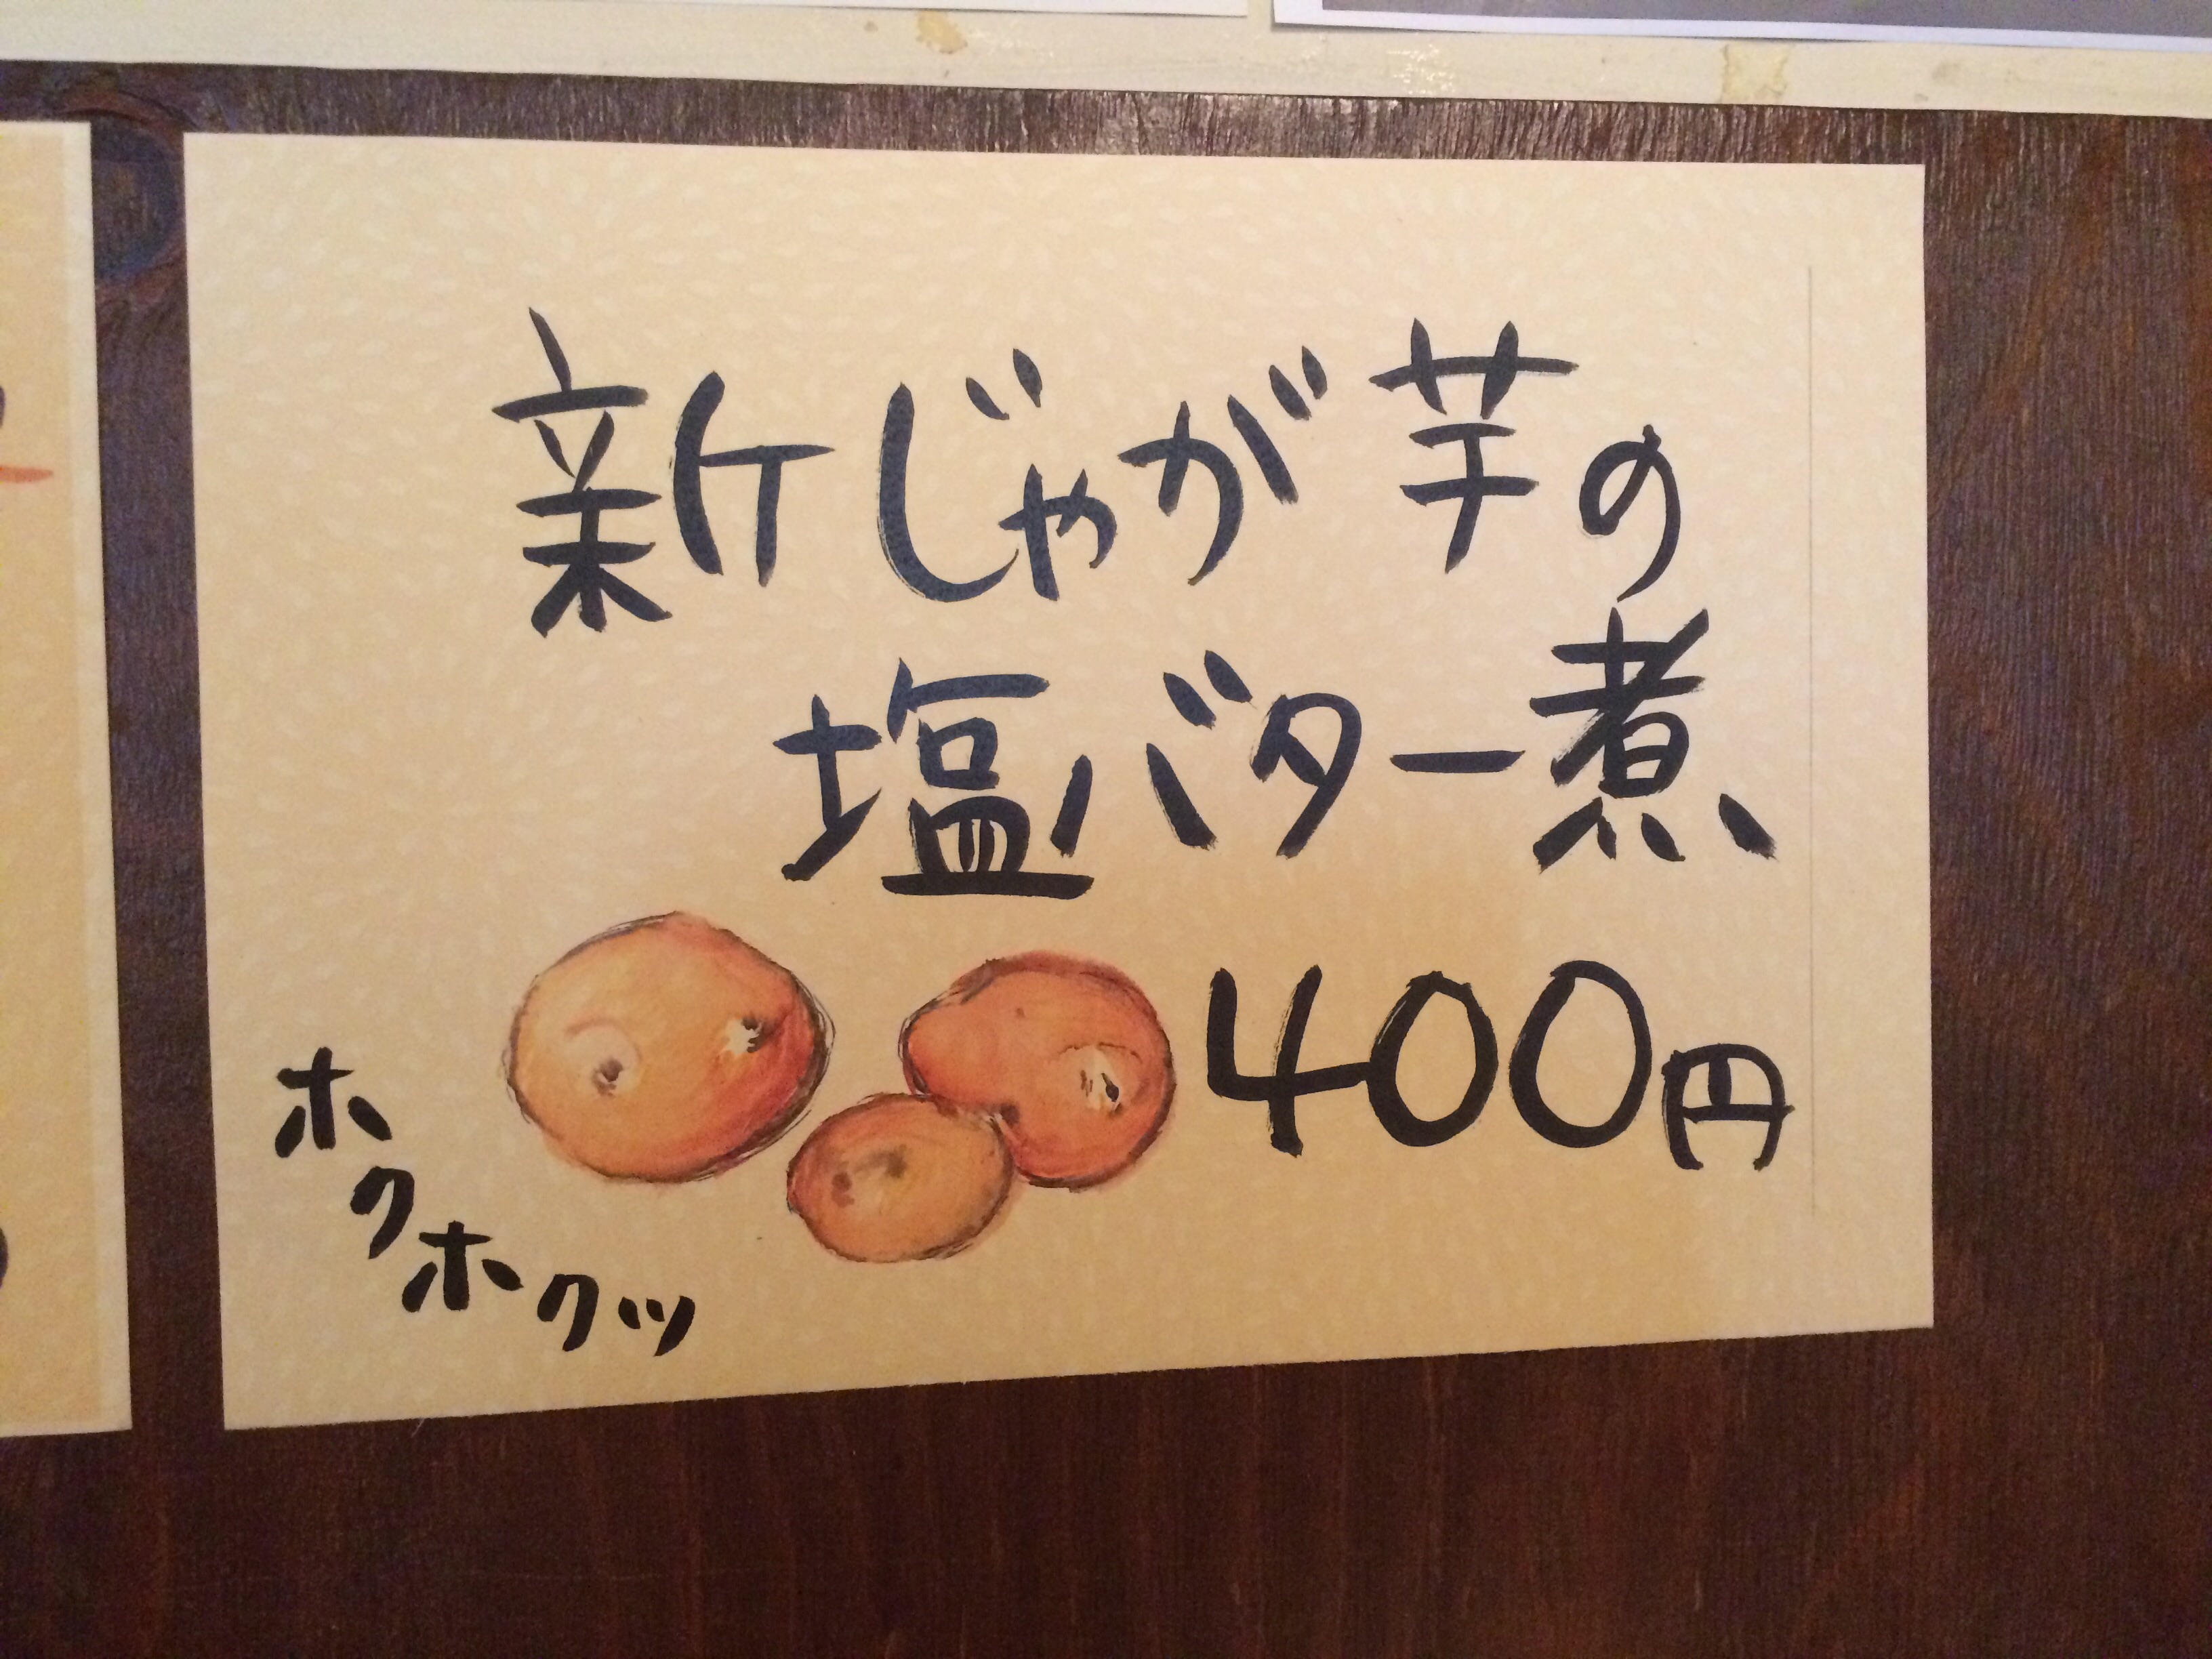 新じゃが芋の
塩バター煮
400円
ホクホクッ